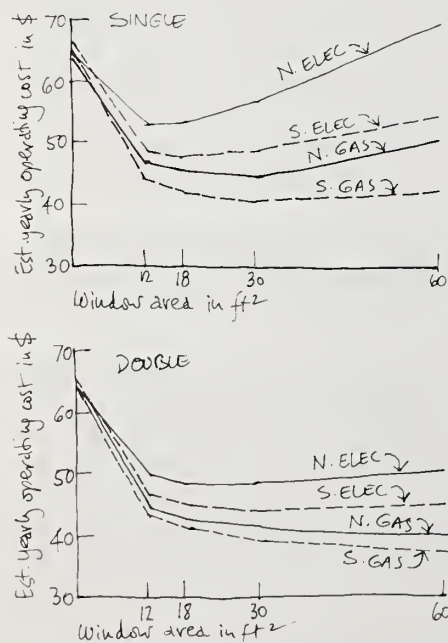 SINGLE
Est. yearly operating cost in $
70
60
50
40
30
N. ELEC
S. ELEC
N. GAS
S. GAS
12 18 30 60
Window area in ft2
DOUBLE
Est. yearly operating cost in $
70
60
50
40
30
N. ELEC
S. ELEC
N. GAS
S. GAS
12 18 30 60
Window area in ft2